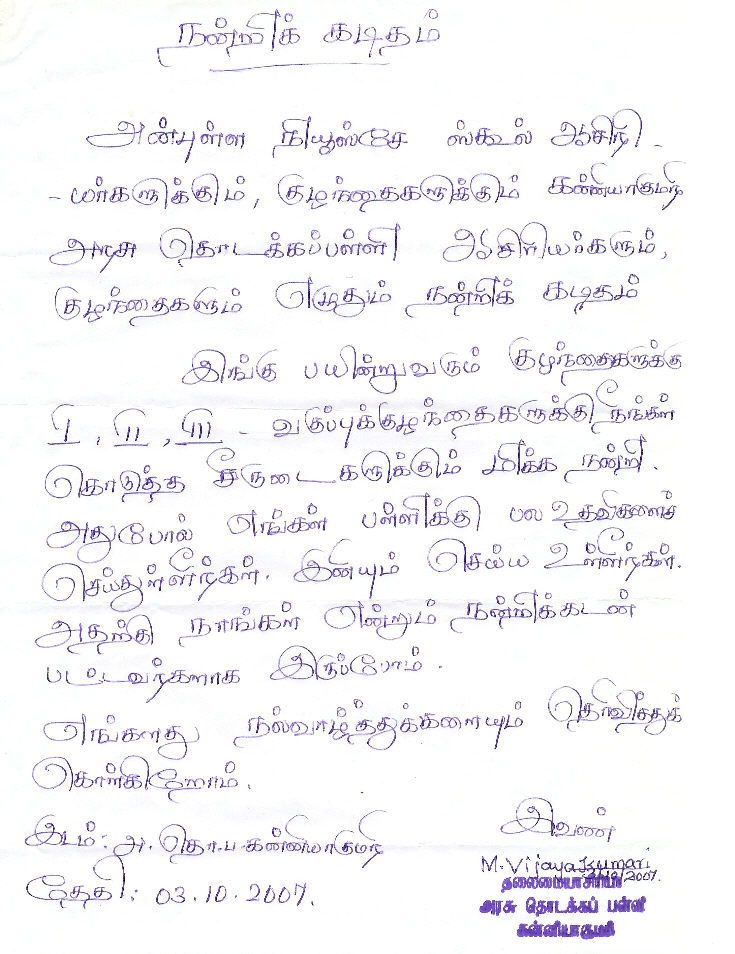 நன்றிக் கடிதம்
அன்புள்ள நியூஸ்சே ஸ்கூல் ஆசிரி -
- யர்களுக்கும், குழந்தைகளுக்கும் கன்னியாகுமரி
அரசு தொடக்கப்பள்ளி ஆசிரியர்களும்,
குழந்தைகளும் எழுதும் நன்றிக் கடிதம்
இங்கு பயின்றுவரும் குழந்தைகளுக்கு
I, II, III - வகுப்புக்குழந்தைகளுக்கு நீங்கள்
கொடுத்த சீருடைகளுக்கும் மிக்க நன்றி.
அதுபோல் எங்கள் பள்ளிக்கு பல உதவிகளைச்
செய்துள்ளீர்கள். இனியும் செய்ய உள்ளீர்கள்.
அதற்கு நாங்கள் என்றும் நன்றிக்கடன்
பட்டவர்களாக இருப்போம்.
எங்களது நல்வாழ்த்துக்களையும் தெரிவித்துக்
கொள்கிறோம்.
இடம்: அ. தொ. ப கன்னியாகுமரி
தேதி: 03.10.2007.
இவண்
M. Vijaya Kumari
3/10/2007.
தலைமையாசிரியர்
அரசு தொடக்கப் பள்ளி
கன்னியாகுமரி